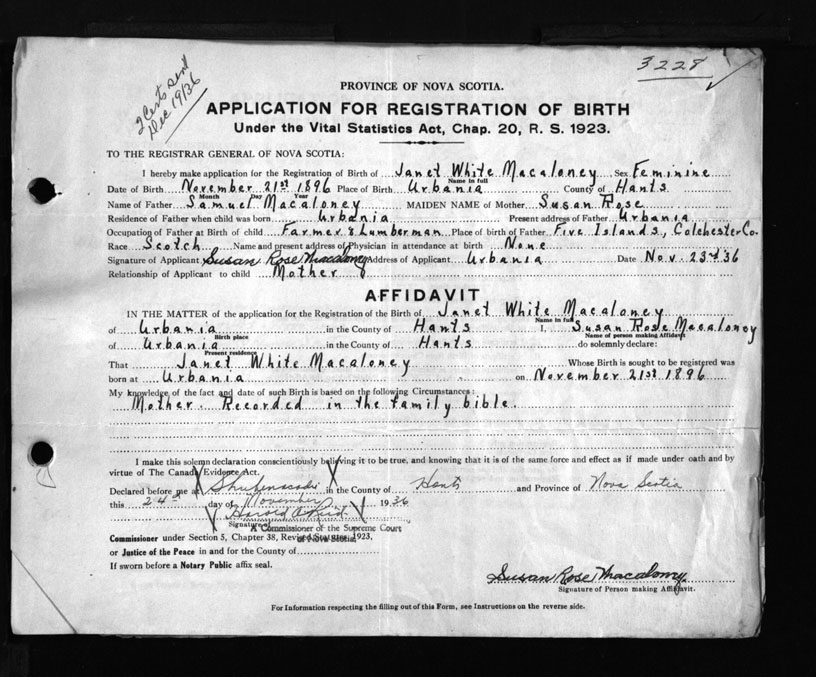 3228
2 Certs sent
Dec 19/36
PROVINCE OF NOVA SCOTIA.
APPLICATION FOR REGISTRATION OF BIRTH
Under the Vital Statistics Act, Chap. 20, R. S. 1923.
TO THE REGISTRAR GENERAL OF NOVA SCOTIA:
I hereby make application for the Registration of Birth of Janet White Macaloney Sex Feminine
Name in full
Date of Birth November 21st 1896 Place of Birth Urbania County of Hants
Month Day Year
Name of Father Samuel Macaloney MAIDEN NAME of Mother Susan Rose
Residence of Father when child was born Urbania Present address of Father Urbania
Occupation of Father at Birth of child Farmer & Lumberman Place of birth of Father Five Islands, Colchester Co.
Race Scotch Name and present address of Physician in attendance at birth None
Signature of Applicant Susan Rose Macaloney Address of Applicant Urbania Date Nov. 23rd 36
Relationship of Applicant to child Mother
AFFIDAVIT
IN THE MATTER of the application for the Registration of the Birth of Janet White Macaloney
Name in full
of Urbania in the County of Hants I, Susan Rose Macaloney
Birth place Name of person making Affidavit
of Urbania in the County of Hants do solemnly declare:
Present residence
That Janet White Macaloney Whose Birth is sought to be registered was
born at Urbania on November 21st 1896
My knowledge of the fact and date of such Birth is based on the following Circumstances:
Mother. Recorded in the family bible.
I make this solemn declaration conscientiously believing it to be true, and knowing that it is of the same force and effect as if made under oath and by
virtue of The Canada Evidence Act.
Declared before me at Shubenacadie in the County of Hants and Province of Nova Scotia
this 24th day of November 1936
Harold A Reid
Signature
A Commissioner of the Supreme Court
of Nova Scotia
Commissioner under Section 5, Chapter 38, Revised Statutes, 1923,
or Justice of the Peace in and for the County of
If sworn before a Notary Public affix seal.
Susan Rose Macaloney
Signature of Person making Affidavit.
For Information respecting the filling out of this Form, see Instructions on the reverse side.